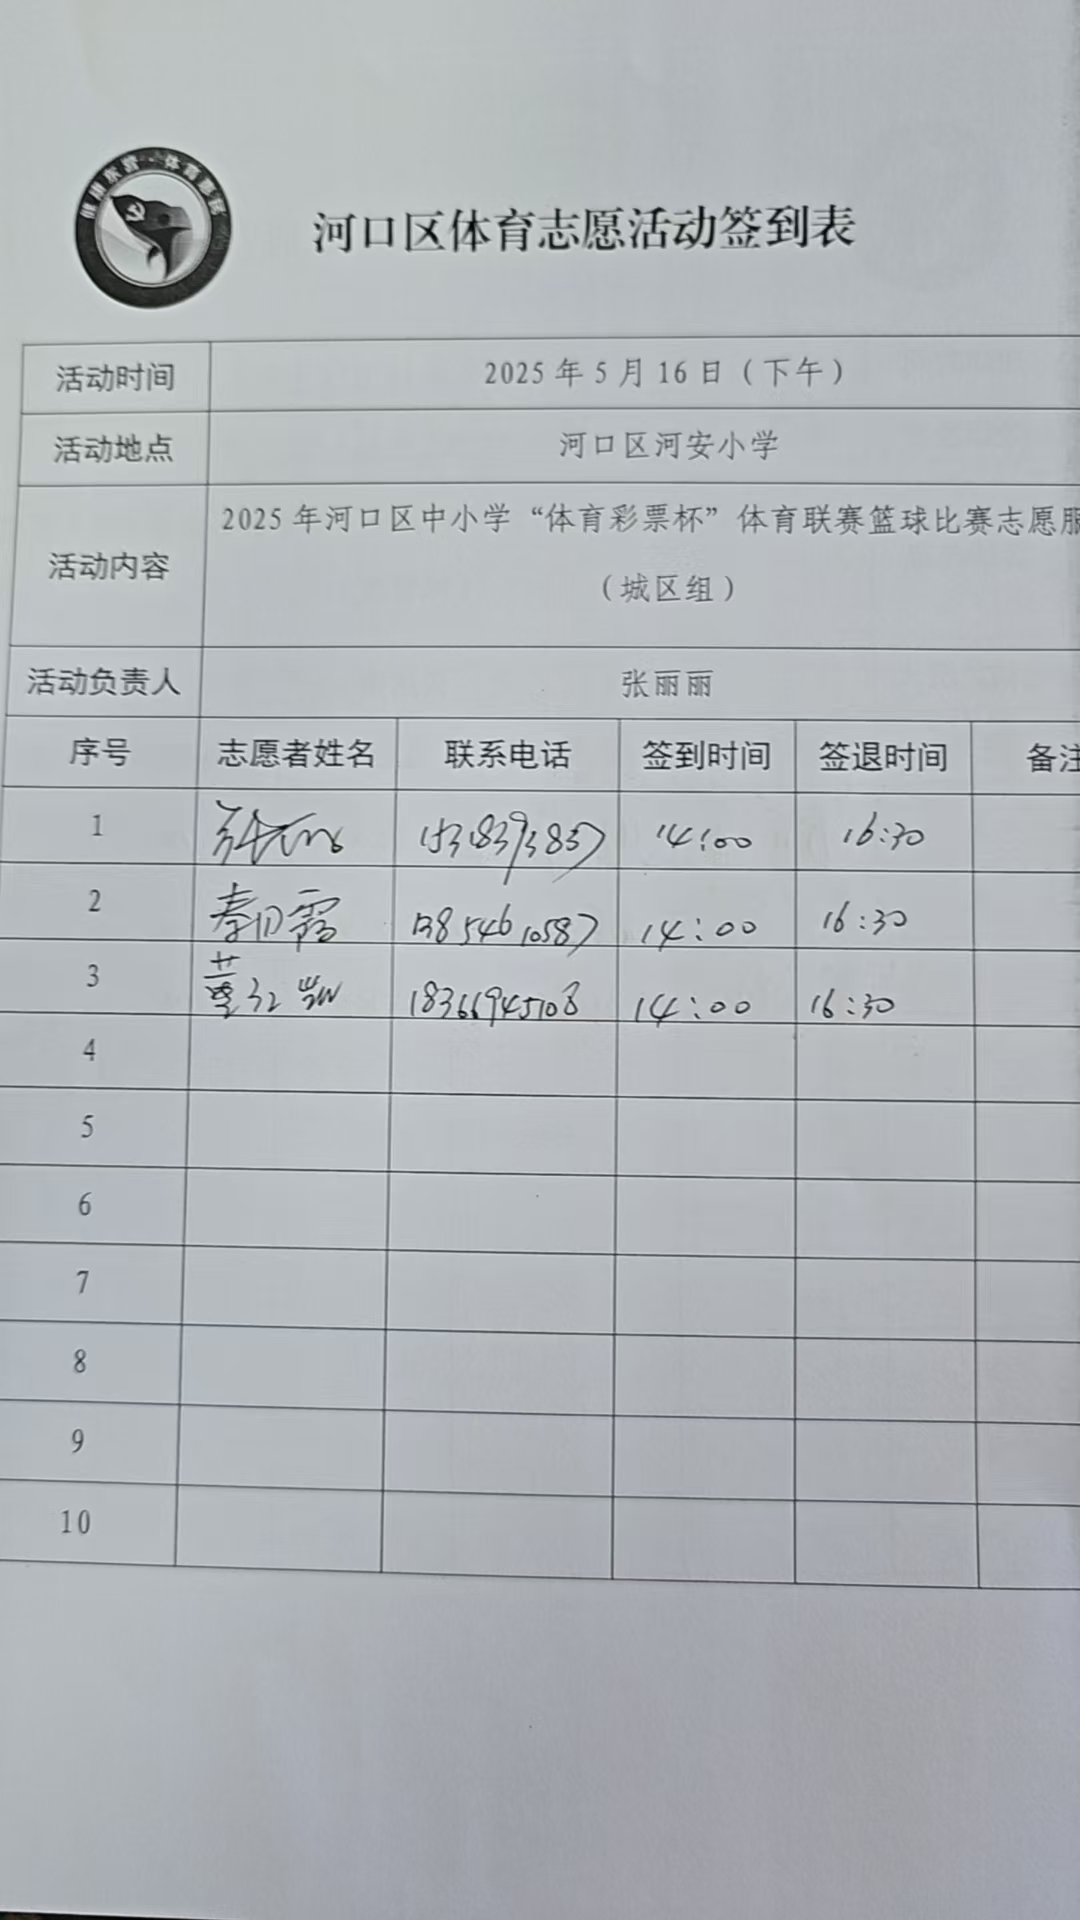 河口区体育志愿活动签到表
活动时间 2025年5月16日（下午）
活动地点 河口区河安小学
活动内容 2025年河口区中小学“体育彩票杯”体育联赛篮球比赛志愿服
（城区组）
活动负责人 张丽丽
序号 志愿者姓名 联系电话 签到时间 签退时间 备注
1 14:00 16:30
2 13854610587 14:00 16:30
3 18366945108 14:00 16:30
4
5
6
7
8
9
10